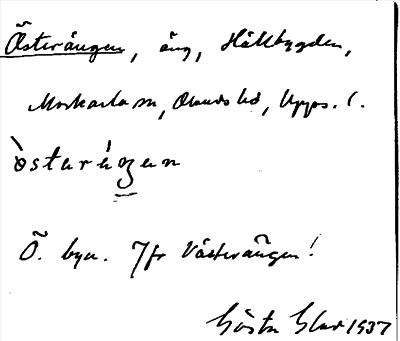 Österängen, äng, Hållbygden,
Morkarla sn, Olands hd, Upps. l.
òsteräŋen
Ö. byn. Jfr Västerängen!
Gösta 1937